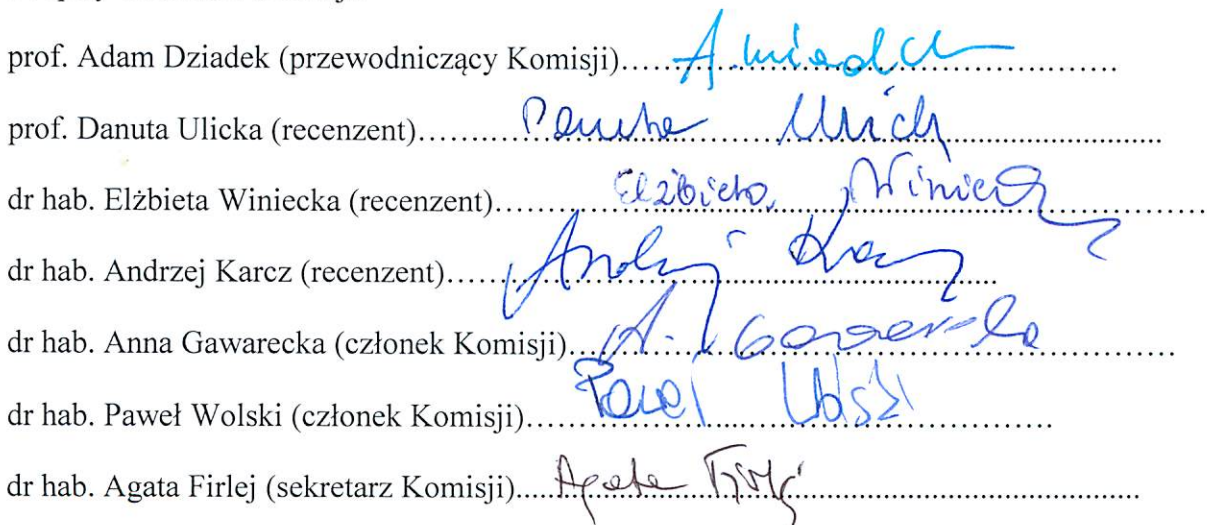 prof. Adam Dziadek (przewodniczący Komisji)
prof. Danuta Ulicka (recenzent) Danuta Ulicka
dr hab. Elżbieta Winiecka (recenzent) Elżbieta Winiecka
dr hab. Andrzej Karcz (recenzent) Andrzej Karcz
dr hab. Anna Gawarecka (członek Komisji) A. Gawarecka
dr hab. Paweł Wolski (członek Komisji) Paweł Wolski
dr hab. Agata Firlej (sekretarz Komisji) Agata Firlej